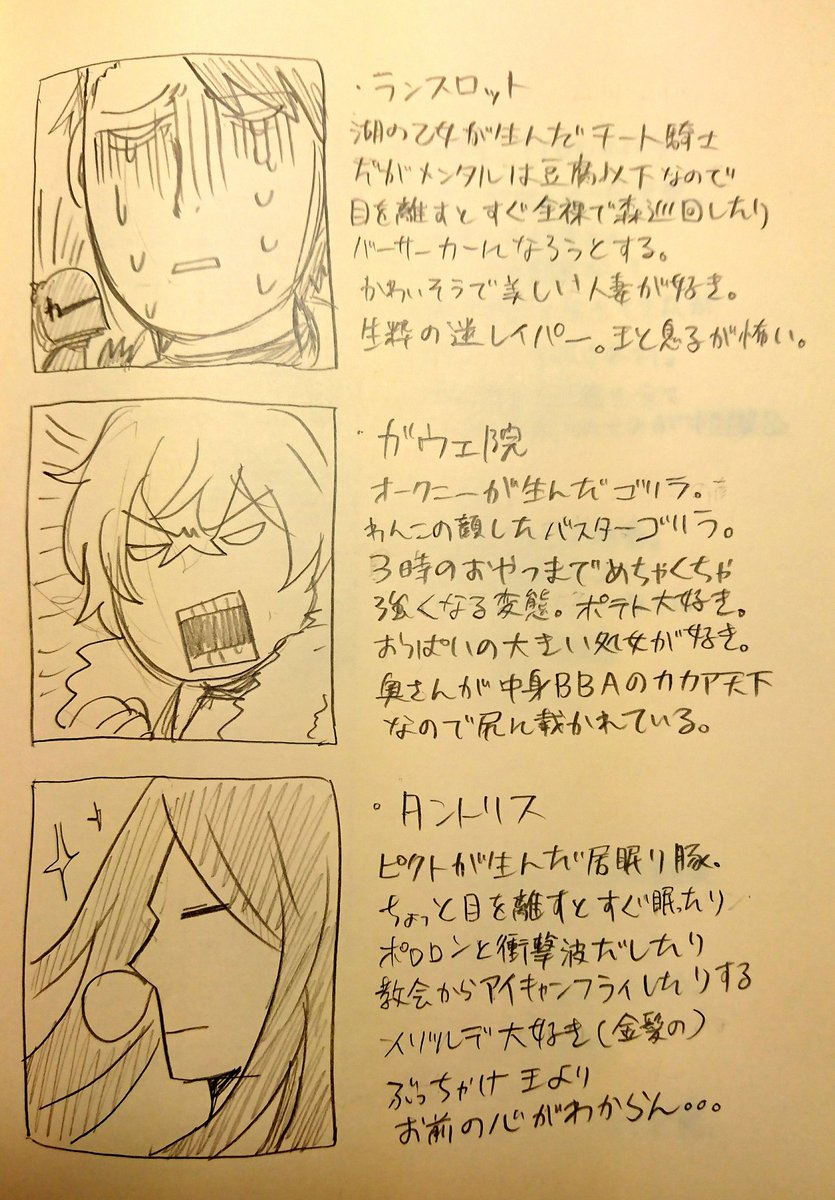 ・ランスロット
湖の乙女が生んだチート騎士
だがメンタルは豆腐以下なので
目を離すとすぐ全裸で森巡回したり
バーサーカーになろうとする。
かわいそうで美しい人妻が好き。
生粋の迷レイパー。王と息子が怖い。
・ガウェ院
オークニーが生んだゴリラ。
わんこの顔したバスターゴリラ。
3時のおやつまでめちゃくちゃ
強くなる変態。ポテト大好き。
おっぱいの大きい処女が好き。
奥さんが中身BBAのカカア天下
なので尻に敷かれている。
・タントリス
ピクトが生んだ居眠り豚。
ちょっと目を離すとすぐ眠ったり
ポロロンと衝撃波だしたり
教会からアイキャンフライしたりする
イゾルデ大好き(金髪の)
ぶっちゃけ王より
お前の心がわからん…